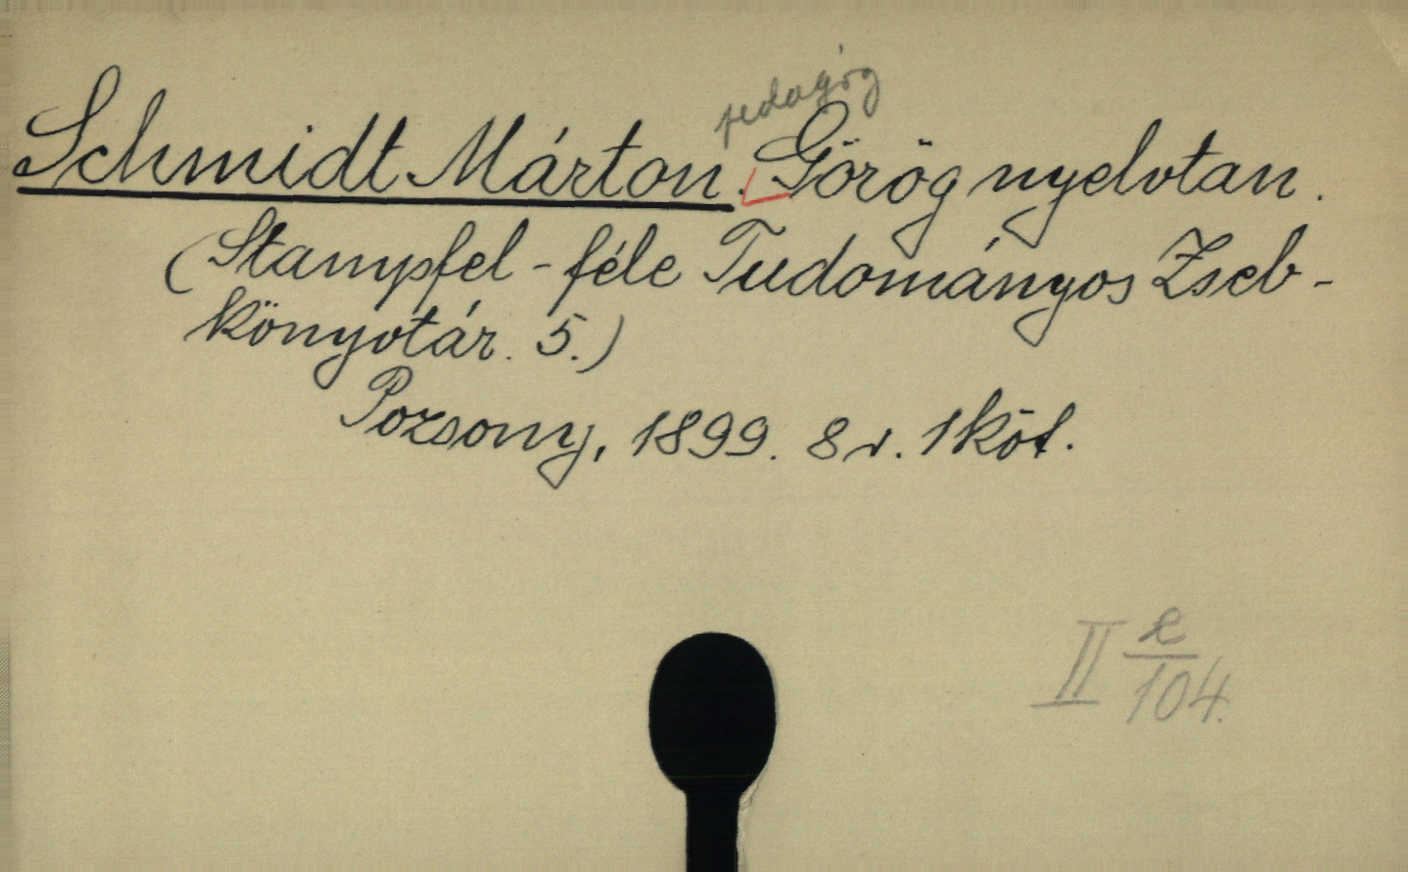 pedagóg
Schmidt Márton. Görög nyelvtan.
(Stampfel-féle Tudományos Zseb-
könyvtár. 5.)
Pozsony, 1899. 8r. 1 köt.
II e/104.